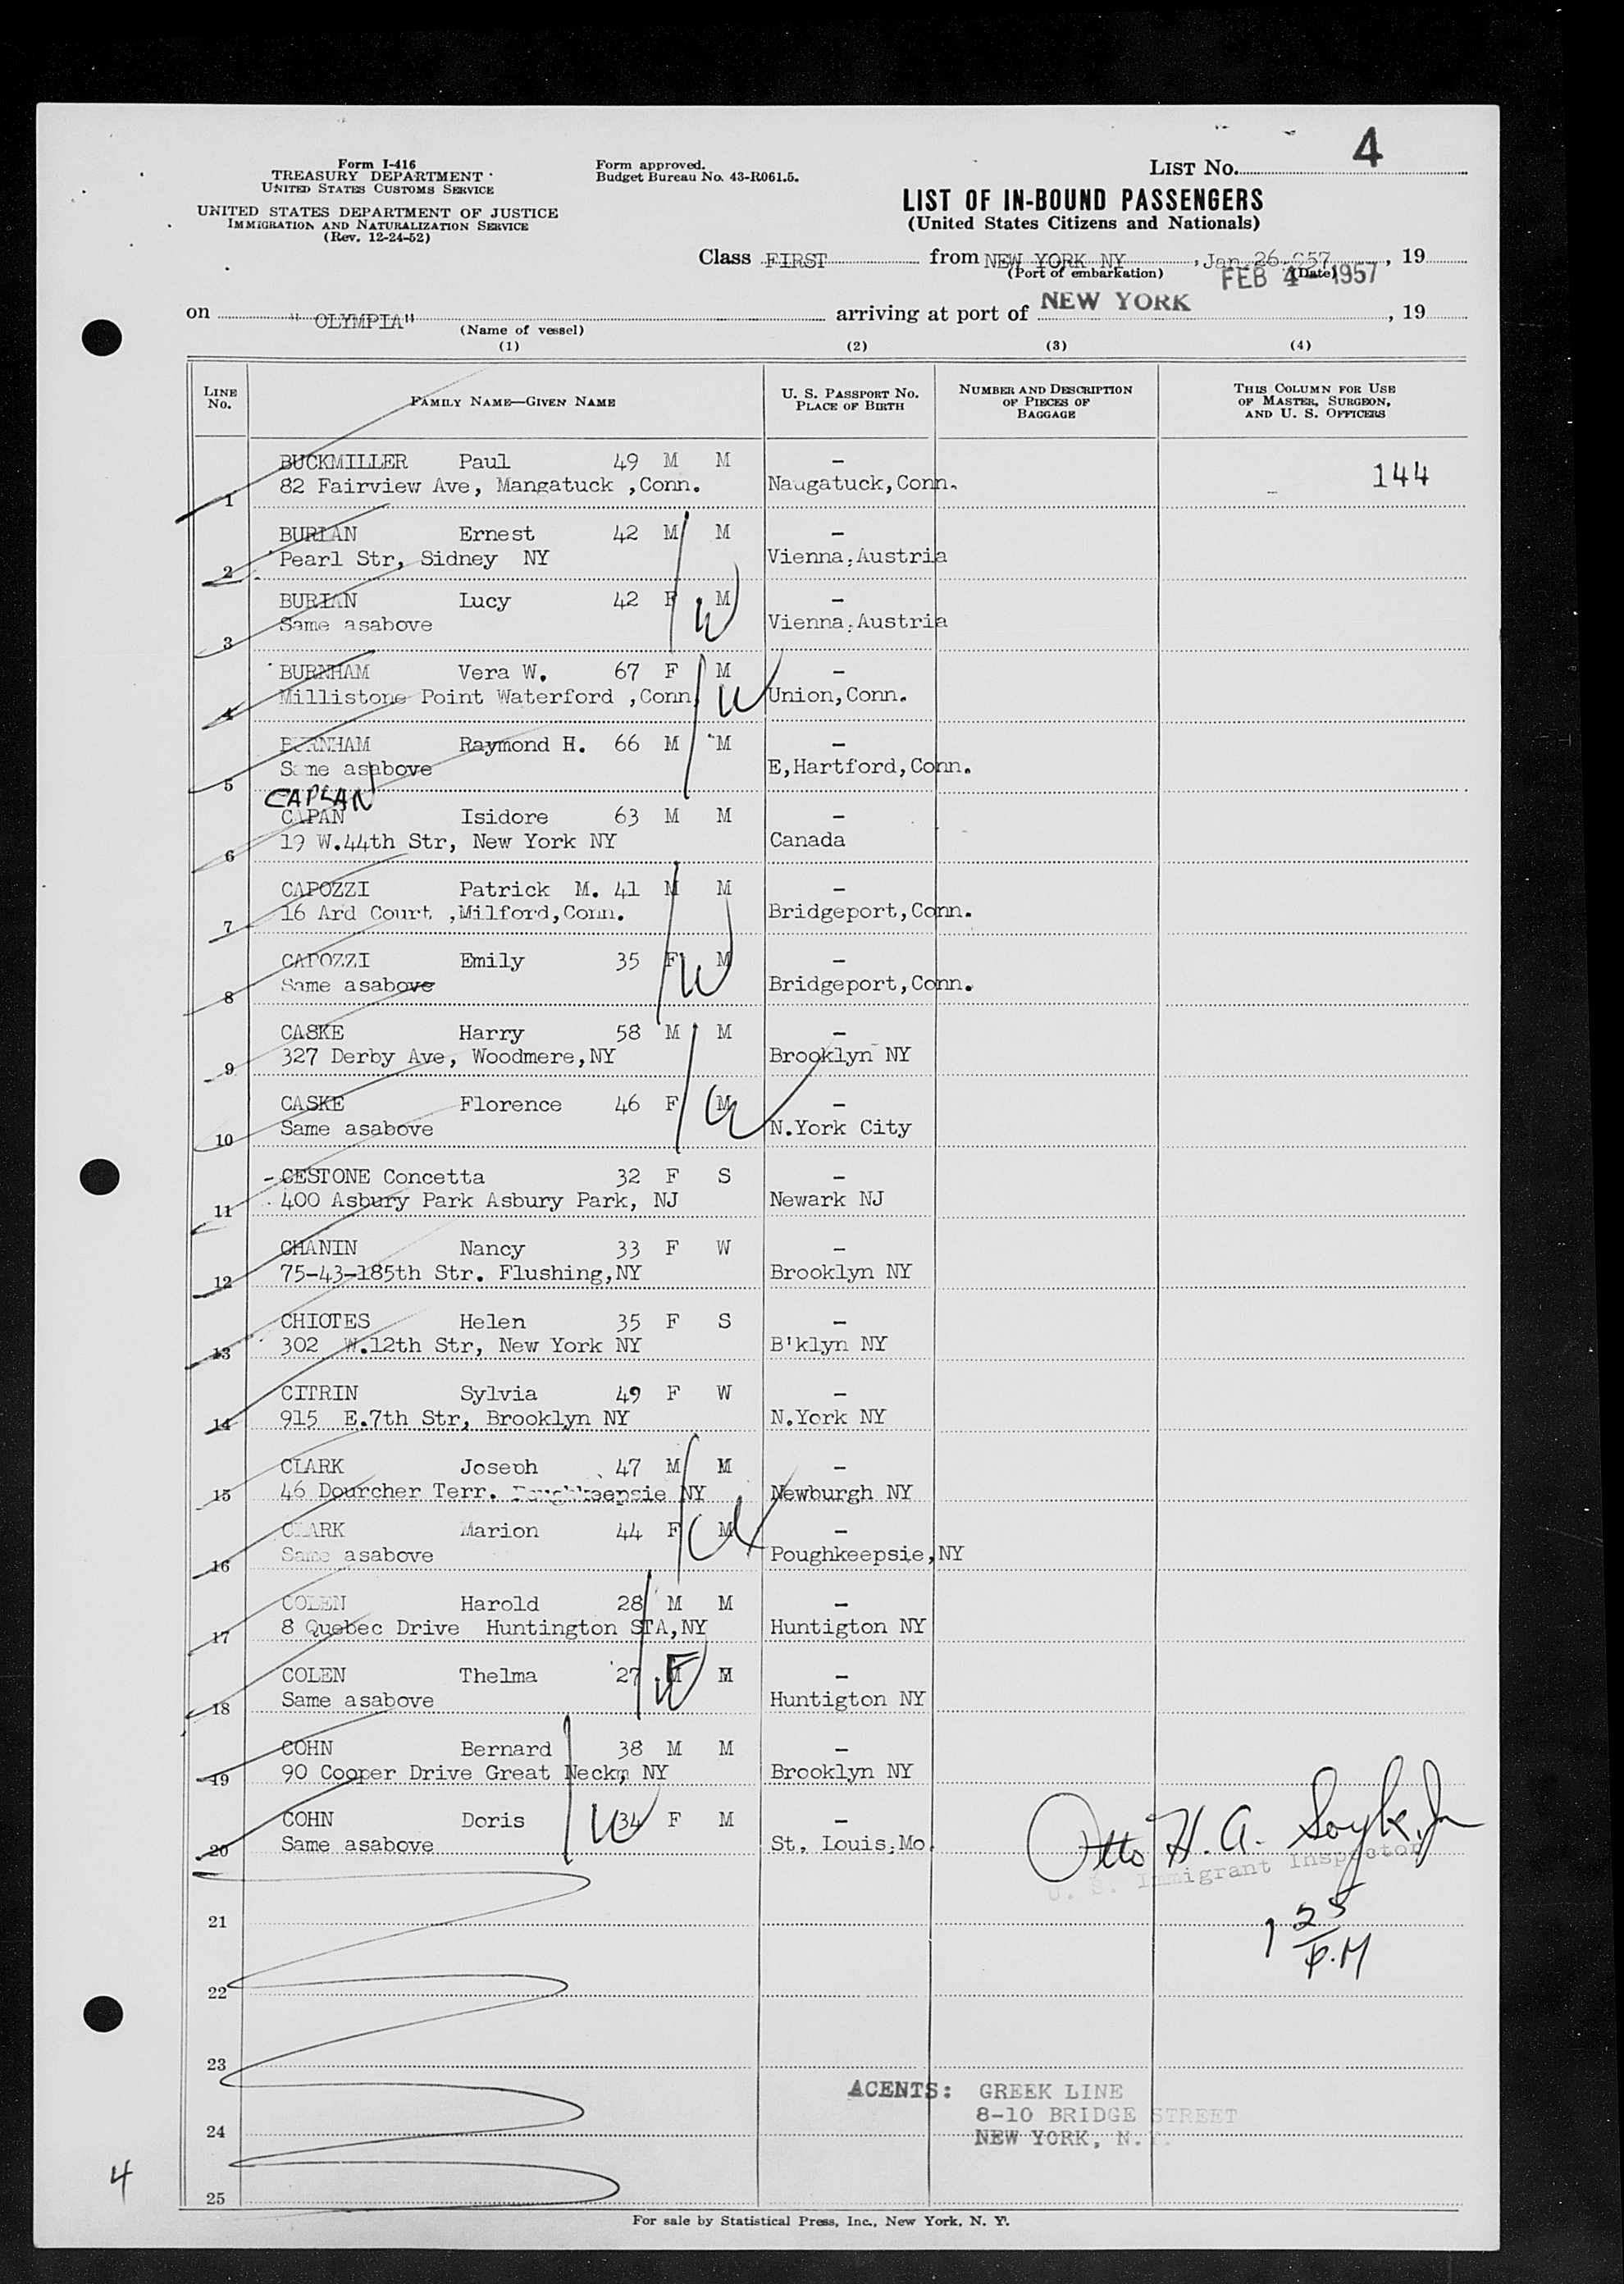 Form I-416
TREASURY DEPARTMENT
UNITED STATES CUSTOMS SERVICE
UNITED STATES DEPARTMENT OF JUSTICE
IMMIGRATION AND NATURALIZATION SERVICE
(Rev. 12-24-52)
Form approved.
Budget Bureau No. 43-R061.5.
LIST No. 4
LIST OF IN-BOUND PASSENGERS
(United States Citizens and Nationals)
Class FIRST from NEW YORK NY, Jan 26. 957, 19
(Port of embarkation) (Date)
FEB 4 - 1957
on " OLYMPIA" arriving at port of NEW YORK, 19
(Name of vessel)
(1) (2) (3) (4)
LINE No. FAMILY NAME—GIVEN NAME U. S. PASSPORT No. PLACE OF BIRTH NUMBER AND DESCRIPTION OF PIECES OF BAGGAGE THIS COLUMN FOR USE OF MASTER, SURGEON, AND U. S. OFFICERS
BUCKMILLER Paul 49 M M - 144
1 82 Fairview Ave, Mangatuck ,Conn. Naugatuck,Conn.
BURIAN Ernest 42 M M -
2 Pearl Str, Sidney NY Vienna.Austria
BURIAN Lucy 42 F M -
3 Same asabove W Vienna.Austria
BURNHAM Vera W. 67 F M -
4 Millistone Point Waterford ,Conn W Union,Conn.
BURNHAM Raymond H. 66 M M -
5 Same asabove E,Hartford,Conn.
CAPLAN
CAPAN Isidore 63 M M -
6 19 W.44th Str, New York NY Canada
CAPOZZI Patrick M. 41 M M -
7 16 Ard Court ,Milford,Conn. Bridgeport,Conn.
CAPOZZI Emily 35 F M -
8 Same asabove W Bridgeport,Conn.
CASKE Harry 58 M M -
9 327 Derby Ave, Woodmere,NY Brooklyn NY
CASKE Florence 46 F M -
10 Same asabove W N.York City
- CESTONE Concetta 32 F S -
11 400 Asbury Park Asbury Park, NJ Newark NJ
CHANIN Nancy 33 F W -
12 75-43-185th Str. Flushing,NY Brooklyn NY
CHIOTES Helen 35 F S -
13 302 W.12th Str, New York NY B'klyn NY
CITRIN Sylvia 49 F W -
14 915 E.7th Str, Brooklyn NY N.York NY
CLARK Joseph 47 M M -
15 46 Dourcher Terr. Poughkeepsie NY Newburgh NY
CLARK Marion 44 F M -
16 Same asabove W Poughkeepsie,NY
COLEN Harold 28 M M -
17 8 Quebec Drive Huntington STA,NY Huntigton NY
COLEN Thelma 27 F M -
18 Same asabove W Huntigton NY
COHN Bernard 38 M M -
19 90 Cooper Drive Great Neckm NY Brooklyn NY
COHN Doris 34 F M -
20 Same asabove W St. Louis.Mo.
Otto H. A. Soyk Jr
U. S. Immigrant Inspector
21
1 25
P.M
22
23
ACENTS: GREEK LINE
8-10 BRIDGE STREET
24
NEW YORK, N.Y.
4
25
For sale by Statistical Press, Inc., New York, N. Y.